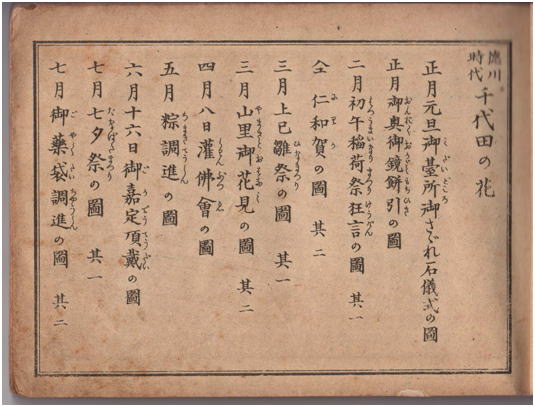 徳川時代 千代田の花
正月元旦御臺所御さゞれ石儀式の圖
正月御奥御鏡餅引の圖
二月初午稲荷祭狂言の圖 其一
仝 仁和賀の圖 其二
三月上巳雛祭の圖 其一
三月山里御花見の圖 其二
四月八日灌佛會の圖
五月粽調進の圖
六月十六日御嘉定頂戴の圖
七月七夕祭の圖 其一
七月御藥袋調進の圖 其二